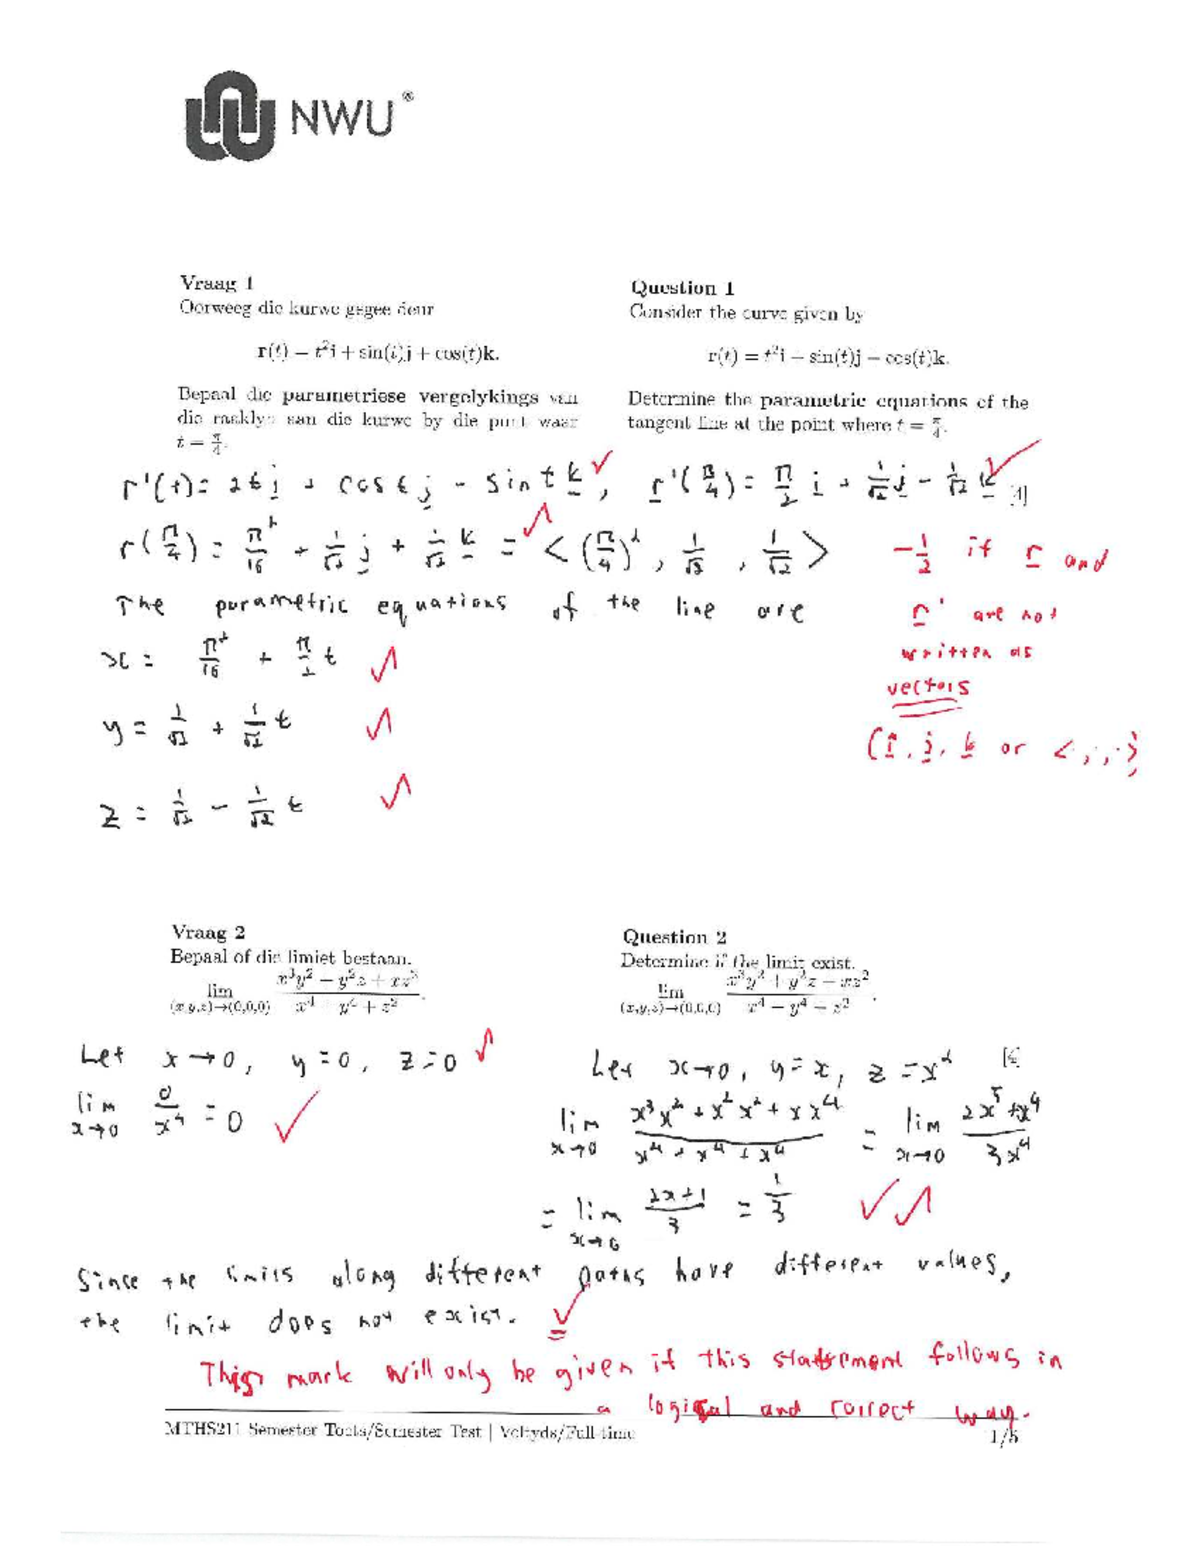 NWU®
Vraag 1
Oorweeg die kurwe gegee deur
r(t) = t²i + sin(t)j + cos(t)k.
Bepaal die parametriese vergelykings van
die raaklyn aan die kurwe by die punt waar
t = π/4.
Question 1
Consider the curve given by
r(t) = t²i + sin(t)j + cos(t)k.
Determine the parametric equations of the
tangent line at the point where t = π/4.
r'(t) = 2t i + cos t j - sin t k, r'(π/4) = π/2 i + 1/√2 j - 1/√2 k
[4]
r(π/4) = π²/16 + 1/√2 j + 1/√2 k = < (π/4)², 1/√2, 1/√2 >
The parametric equations of the line are
x = π²/16 + π/2 t
y = 1/√2 + 1/√2 t
z = 1/√2 - 1/√2 t
-1/2 if r and
r' are not
written as
vectors
(i, j, k or < , , · >
Vraag 2
Bepaal of die limiet bestaan.
lim (x,y,z)→(0,0,0) x³y² + y²z + xz² / x⁴ + y⁴ + z² .
Question 2
Determine if the limit exist.
lim (x,y,z)→(0,0,0) x³y² + y²z + xz² / x⁴ + y⁴ + z² .
[4]
Let x → 0, y = 0, z = 0
lim x→0 0/x⁴ = 0
Let x→0, y = x, z = x²
lim x→0 x³x² + x²x² + x x⁴ / x⁴ + x⁴ + x⁴ = lim x→0 2x⁵ + x⁴ / 3x⁴
= lim x→0 2x+1 / 3 = 1/3
Since the limits along different paths have different values,
the limit does not exist.
This mark will only be given if this statement follows in
a logical and correct way.
MTHS211 Semester Toets/Semester Test | Voltyds/Full-time
1/5